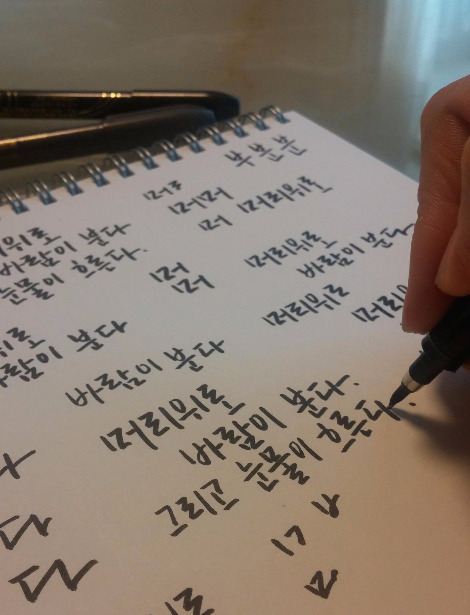 부분분
머ㄹ
머머
머 머리위로
머리위로
바람이 분다
눈물이 흐른다.
머
머
머리위로
바람이 분다
머리위로
머리위
위로
바람이 분다
바람이 분다
머리위로
바람이 분다.
그리고 눈물이 흐른다.
다
다
위로